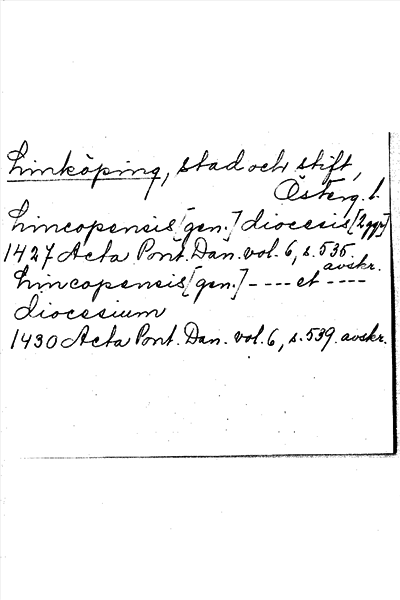 Linköping, stad och stift,
Österg. l.
Lincopensis [gen.] diocesis [2 ggr]
1427 Acta Pont. Dan. vol. 6, s. 535
avskr.
Lincopensis [gen.] ---- et ----
diocesium
1430 Acta Pont. Dan. vol. 6, s. 539. avskr.